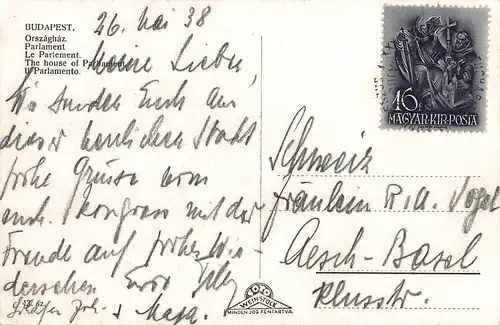 BUDAPEST.
Országház.
Parlament
Le Parlement.
The house of Parliament
Il Parlamento.
26. Mai 38
Meine Lieben,
Wir senden Euch aus
dieser herrlichen Stadt
frohe Grüsse vom
euch. Kongress mit der
Freude auf frohes Wie-
dersehen Eure
+ Maja.
16 F
MAGYAR·KIR·POSTA
Schweiz
Fräulein R. A. Vogel
Aesch-Basel
Klusstr.
WEINSTOCK
MINDEN JOG FENTARTVA.